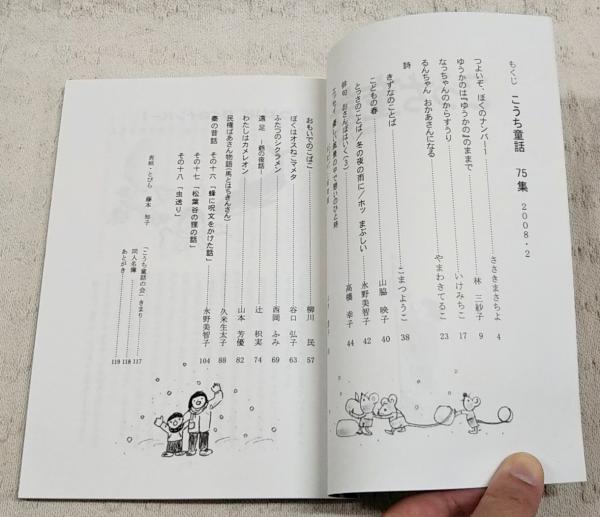 もくじ こうち童話 75集 2008・2
つよいぞ、ぼくのナンバー1 ささきまさちよ 4
ゆうかのは『ゆうかの』のままで 林 三紗子 9
なっちゃんのからすうり いけみちこ 17
るんちゃん おかあさんになる やまわきてるこ 23
詩
きずなのことば こまつようこ 38
こどもの春 山脇 映子 40
とっさのことば/冬の夜の雨に/ホッ まぶしい 永野美智子 42
俳句 おさんぽはいく(3) 高橋 幸子 44
おもいでのこばこ 柳川 民 57
ぼくはオスねこマメタ 谷口 弘子 63
ふたつのシクラメン 西岡 ふみ 69
遠足 ―爺の夜話― 辻 枳実 74
わたしはカメレオン 山本 芳優 82
民権ばあさん物語(馬とはちきんさん) 久米生太子 88
秦の昔話 永野美智子 104
その十六 「蜂に呪文をかけた話」
その十七 「松葉谷の狸の話」
その十八 「虫送り」
表紙・とびら 藤本 知子
「こうち童話の会」きまり 117
同人名簿 118
あとがき 119